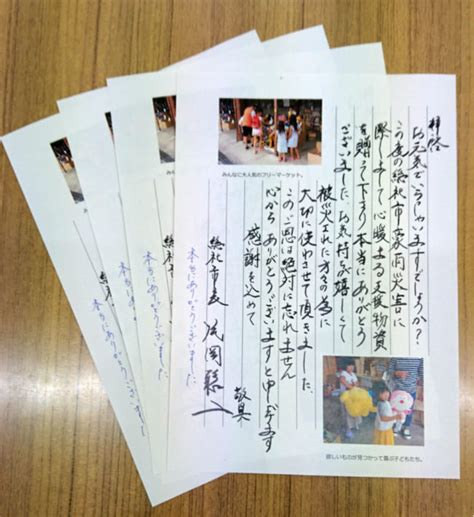 みんなに大人気のフリーマーケット。
拝啓
お元気でいらっしゃいますでしょうか?
この度の総社市豪雨災害に
際しまして心暖まる支援物資
を贈って下さり本当にありがとう
ございました。お気持ちが嬉しくて
被災された方々の為に
大切に使わせて頂きました。
このご恩は絶対に忘れません
心からありがとうございますと申し上げます
感謝を込めて
総社市長 片岡聡一
敬具
本当にありがとうございました
欲しいものが見つかって喜ぶ子どもたち。
みんな
総社市
本当にありがとうございました
総社
本当にありがとうございました
本当にありがとうございました